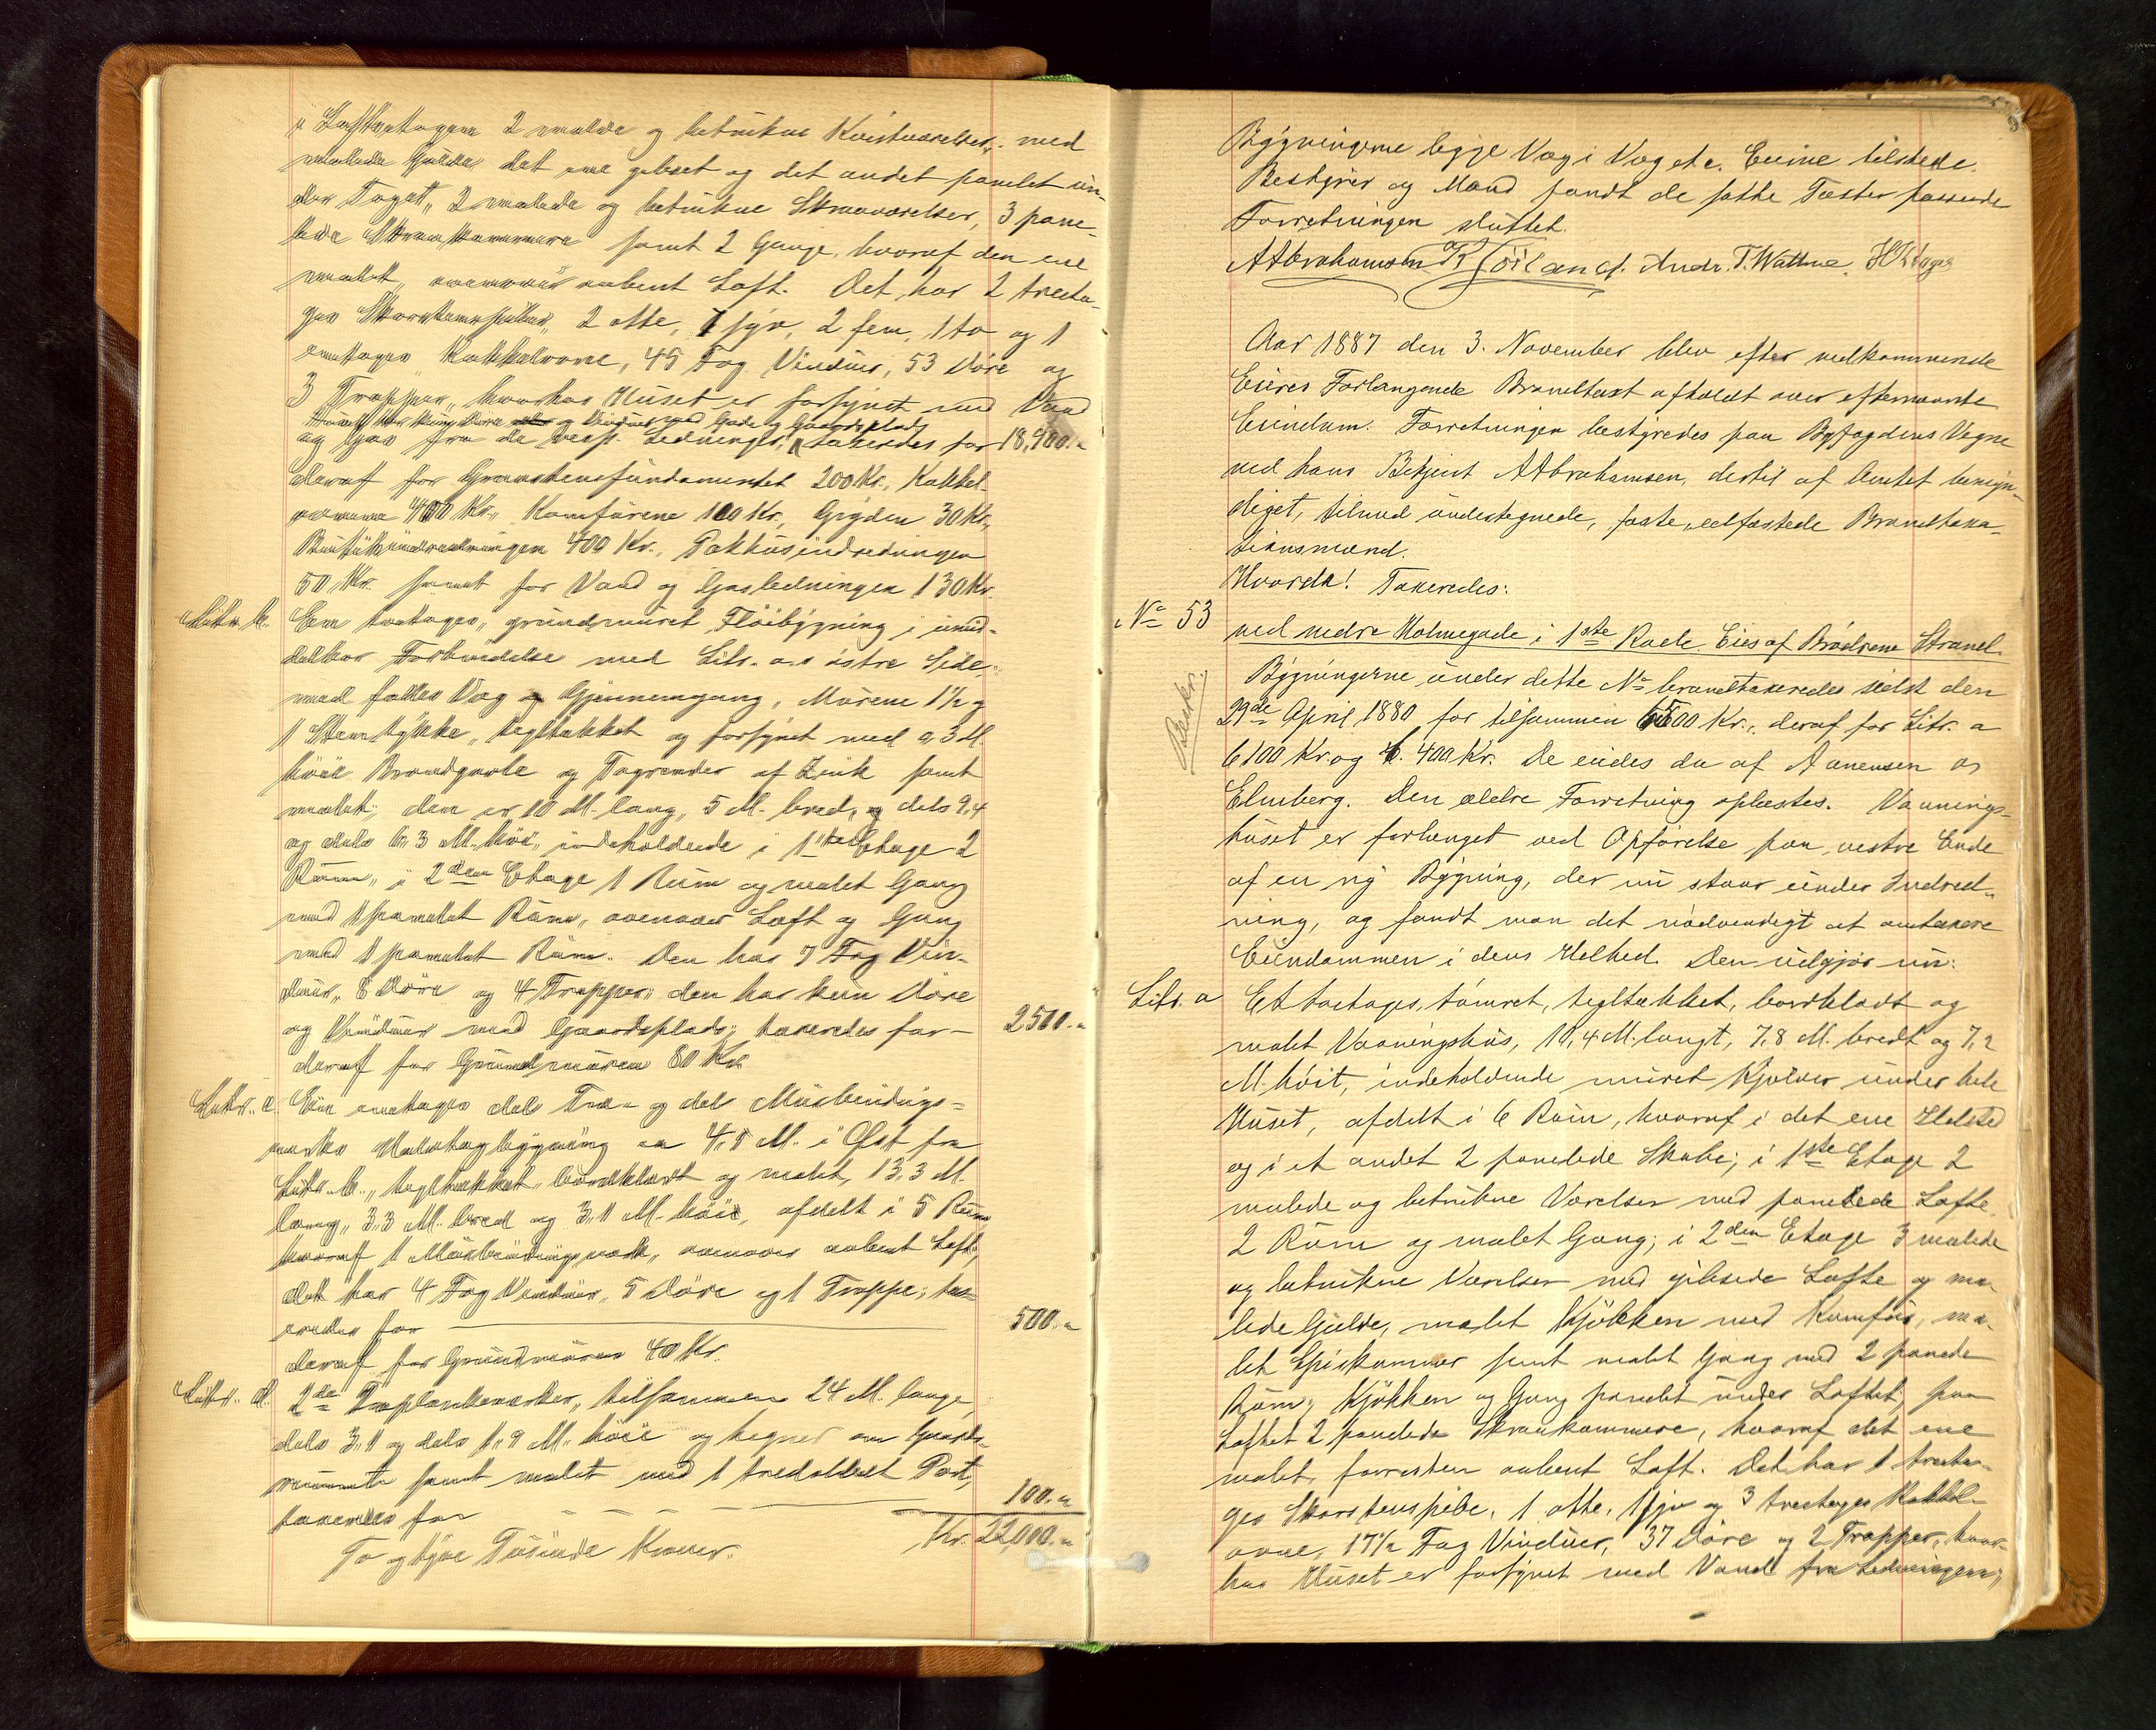 i Loftsetagen 2 malede og betrukne Kvistværelser, med
malede Gulve det ene gibset og det andet panelet un-
der Taget, 2 malede og betrukne Skraaværelser, 3 pane-
lede Skraakammere samt 2 Gange, hvoraf den ene
malet, ovenover aabent Loft. Det har 2 treeta-
ges Skorstenspiber, 2 otte, 1 syv, 2 fem, 1 to og 1
enetages Kakkelovne, 45 Fag Vinduer, 53 Døre og
3 Trapper, hvorhos Huset er forsynet med Vand
Huset har Døre og Vinduer mod Gade og Gaardsplads
og Gas fra de resp. Ledninger, taxeredes for 18,900.-
deraf for Graastensfundamentet 200 Kr., Kakkel-
ovnene 400 Kr., Komfurene 100 Kr., Gryden 30 Kr.,
Butikindredningen 400 Kr., Pakhusindredningen
50 Kr. samt for Vand og Gasledningen 130 Kr.
Litr. b. Een toetages, grundmuret Fløibygning i umid-
delbar Forbindelse med Litr. a.s østre Side,
med fælles Væg og Gjennemgang, Murene 1½ og
1 Sten tykke, tegltækket og forsynet med a, 3 M.
høie Brandgavle og Tagrender af Zink samt
malet; den er 10 M. lang, 5 M. bred, og dels 9,4
og dels 6,3 M. høi, indeholdende i 1ste Etage 2
Rum, i 2den Etage 1 Rum og malet Gang
med 1 panelet Rum, ovenover Loft og Gang
med 1 panelet Rum. Den har 7 Fag Vin-
duer, 8 Døre og 4 Trapper; den har kun Døre
og Vinduer mod Gaardsplads; taxeredes for - 2500.-
deraf for Grundmuren 80 Kr.
Litr. c. Een enetages dels Træ- og dels Murbindings-
verks Halvtagbygning ca 4,5 M. i Øst fra
Litr. b., tegltækket, bordklædt og malet, 13,3 M.
lang, 3,3 M. bred og 3,1 M. høi, afdelt i 5 Rum
hvoraf 1 Murbindingsverk, ovenover aabent Loft;
det har 4 Fag Vinduer, 5 Døre og 1 Trappe; tax-
eredes for 500.-
deraf for Grundmuren 40 Kr.
Litr. d. 2de Træplankeverker, tilsammen 24 M. lange
dels 3,1 og dels 1,9 M. høie og hegner om Gaards-
rummet samt malet med 1 tredobbelt Port,
taxeredes for 100.-
To og tyve Tusinde Kroner. Kr. 22,000.-
Bygningerne ligge Væg i Væg etc. Eierne tilstede.
Bestyrer og Mænd fandt de satte Taxter passende
Forretningen sluttet.
A Abrahamsen Andr. T. Wattne.
Aar 1887 den 3. November blev efter vedkommende
Eieres Forlangende Brandtaxt afholdt over efternævnte
Eiendom. Forretningen bestyredes paa Byfogdens Vegne
ved hans Betjent A Abrahamsen, dertil af Amtet bemyn-
diget, tilmed undertegnede, faste, edfæstede Brandtaxa-
tionsmænd.
Hvorda! Taxeredes:
No 53 ved nedre Holmegade i 1ste Rode. Eies af Brødrene Strand.
Bygningerne under dette No brandtaxeredes sidst den
29de April 1880 for tilsammen 6500 Kr., deraf for Litr. a
6100 Kr. og b. 400 Kr. De eiedes da af Aanensen og
Elmberg. Den ældre Forretning oplæstes. Vaanings-
huset er forlænget ved Opførelse paa vestre Ende
af en ny Bygning, der nu staar under Indred-
ning, og fandt man det nødvendigt at omtaxere
Eiendommen i dens Helhed. Den udgjør nu:
Litr. a Et toetages, tømret, tegltækket, bordklædt og
malet Vaaningshus, 10,4 M. langt, 7,8 M. bredt og 7,2
M. høit, indeholdende muret Kjælder under hele
Huset, afdelt i 6 Rum, hvoraf i det ene Ildsted
og i et andet 2 panelede Skabe; i 1ste Etage 2
malede og betrukne Værelser med panelede Lofte,
2 Rum og malet Gang; i 2den Etage 3 malede
og betrukne Værelser med gibsede Lofte og ma-
lede Gulve, malet Kjøkken med Komfur, ma-
let Spiskammer samt malet Gang med 2 panede
Rum; Kjøkken og Gang panelet under Loftet; paa
Loftet 2 panelede Skraakammere, hvoraf det ene
malet, forresten aabent Loft. Det har 1 treeta-
ges Skorstenspibe, 1 otte, 1 syv og 3 treetages Kakkel-
ovne, 17½ Fag Vinduer, 37 Døre og 2 Trapper, hvor-
hos Huset er forsynet med Vand fra Ledningen;